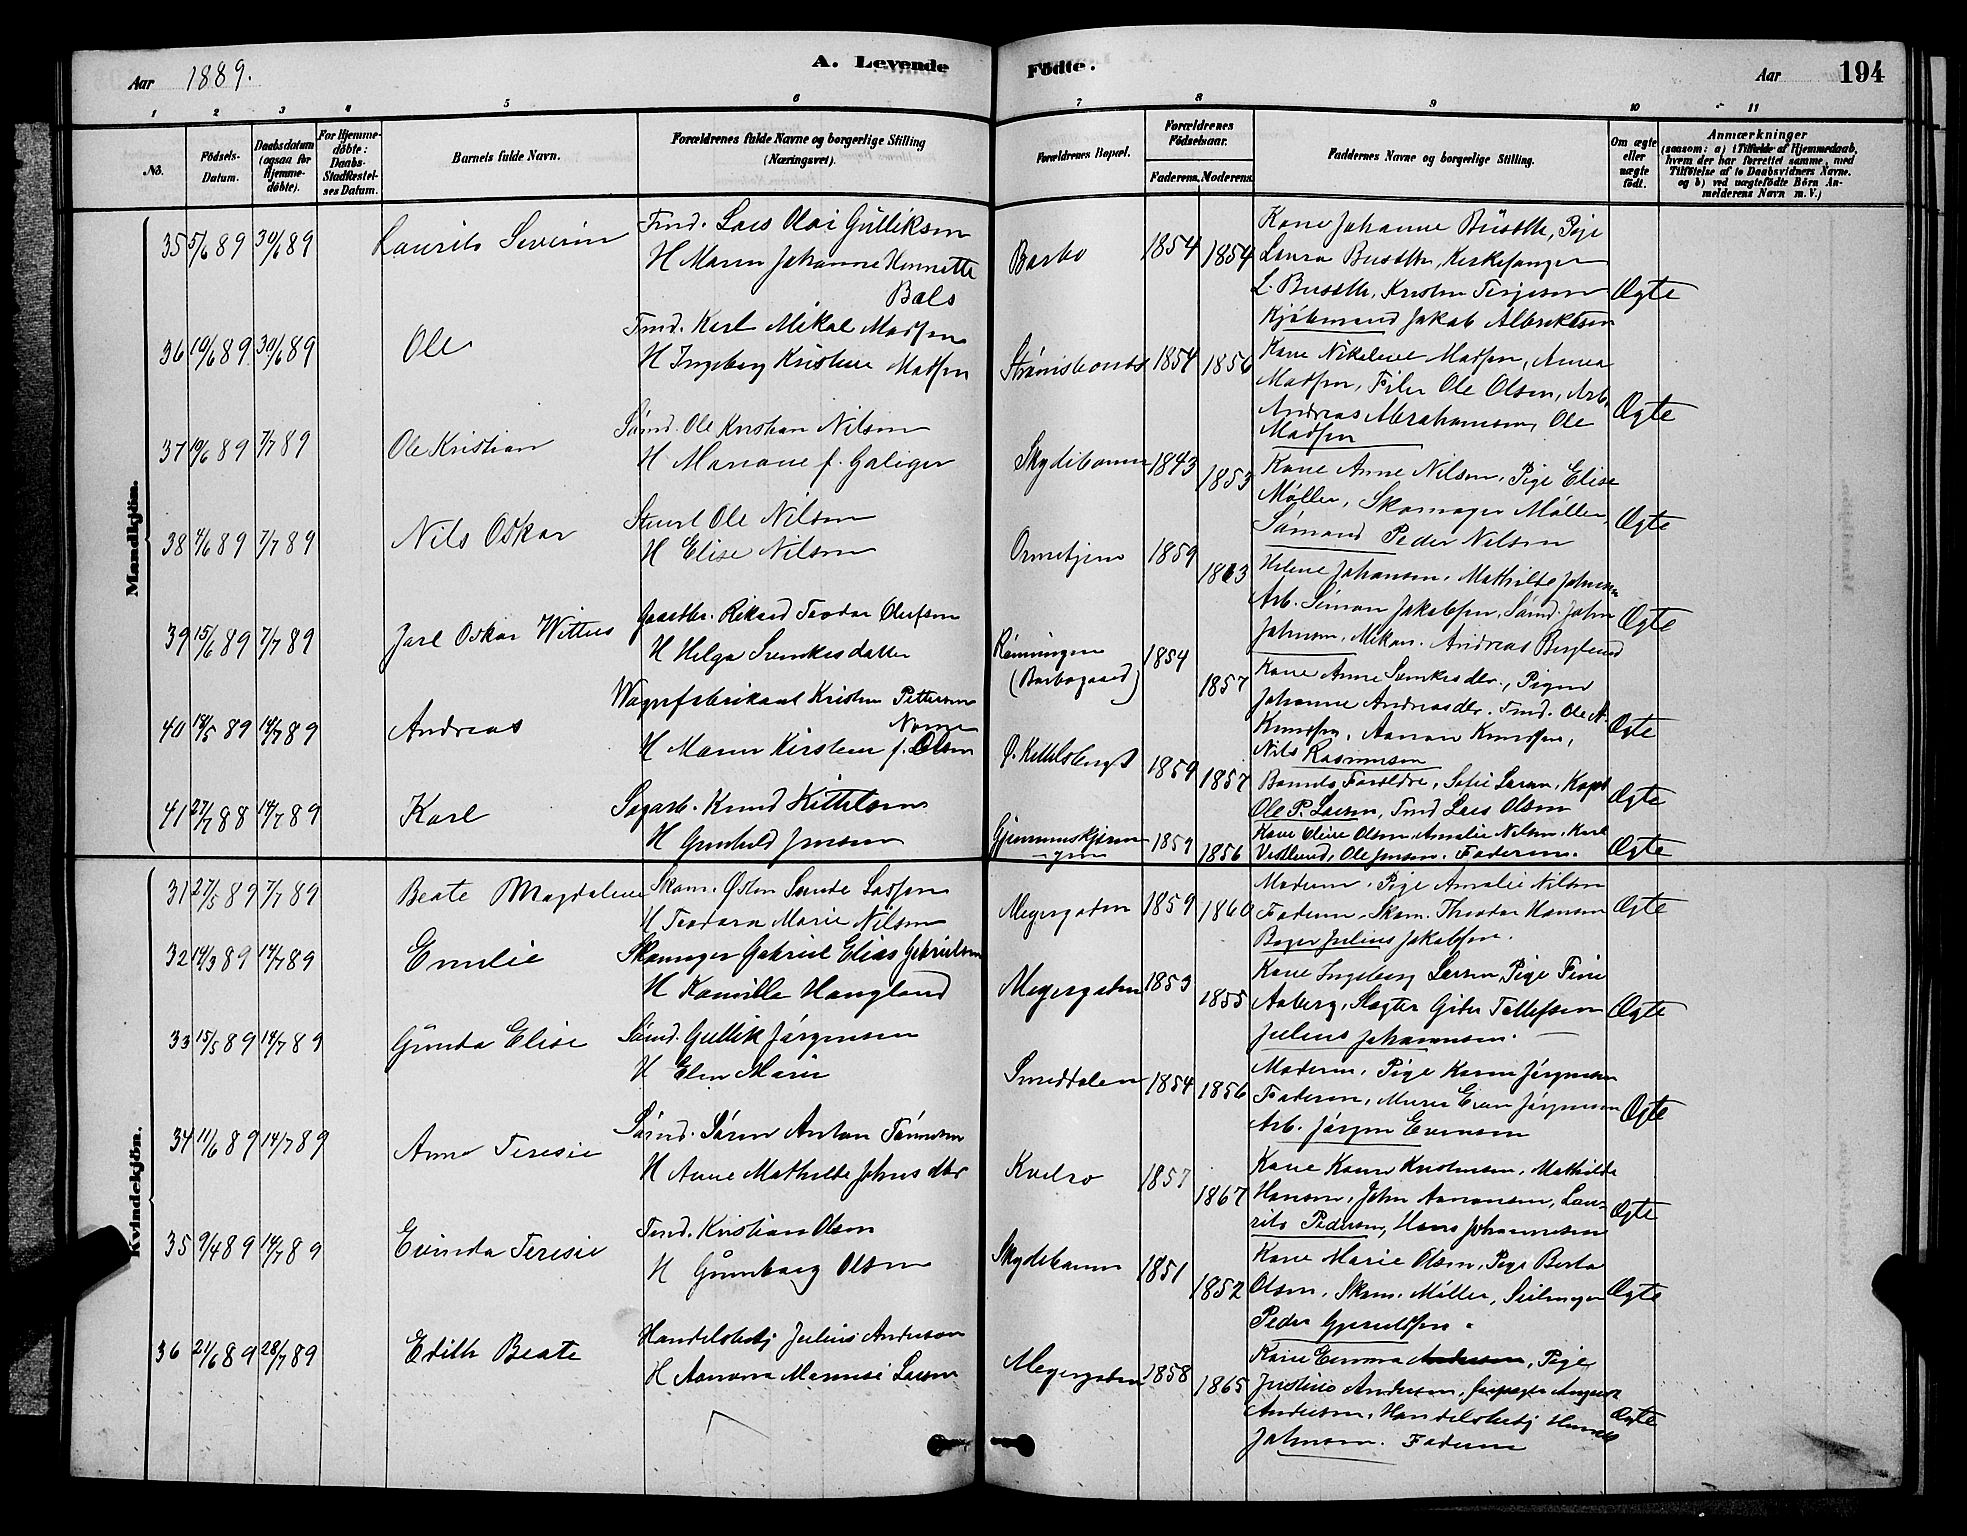 Aar 1889.
A. Levende
Födte.
Aar
194
1 2 3 4 5 6
7 8 9 10 11
No.
Födsels-Datum.
Daabsdatum (ogsaa for Hjemme-döbte).
For Hjemme-döbte: Daabs-Stadfæstel-ses Datum.
Barnets fulde Navn.
Forældrenes fulde Navne og borgerlige Stilling
(Næringsvei).
Forældrenes Bopæl.
Forældrenes Födselsaar.
Faderens. Moderens.
Faddernes Navne og borgerlige Stilling.
Om ægte eller uægte födt.
Anmærkninger
(saasom: a) i Tilfælde af Hjemmedaab,
hvem der har forrettet samme, med
Tilföielse af to Daabsvidners Navne.
og b) ved uægtefödte Börn An-
melderens Navn m. V.)
Mandkjön.
35 5/6 89 30/6 89 Laurits Severin
Tmd. Lars Olai Gulliksen
H Maren Johanne Hennette
Bals
Barbo 1854 1854
Kone Johanne Busdth, Pige
Laura Busdth, Kirkesanger
L. Busdth, Kristen Terjesen
Kjøbmand Jakob Albriktsen
Ægte
36 10/6 89 30/6 89 Ole
Tmd. Karl Mikal Madsen
H Ingeborg Kristine Madsen
Strømsbonds 1854 1856
Kone Nikeline Madsen, Anna
Madsen, Filer Ole Olsen, Arb.
Andreas Abrahamsen, Ole
Madsen
Ægte
37 19/6 89 7/7 89 Ole Kristian
Sømd. Ole Kristian Nilsen
H Mariane f. Galiger
Skydebanen 1843 1853
Kone Anne Nilsen, Pige Elise
Møller, Skomager Møller,
Sømand Peder Nilsen
Ægte
38 4/6 89 7/7 89 Nils Oskar
Stuert Ole Nilsen
H Elise Nilsen
Ormetjern 1859 1863
Helene Johansen, Mathilde Johnsen
Arb. Simon Jakobsen, Sømd. John
Johnsen, Mekan. Andreas Berglund
Ægte
39 15/6 89 7/7 89 Jarl Oskar Wittus
Gaardbr. Rikard Teodor Olufsen
H Helga Svenkesdatter
Rømningen
(Barbogaard) 1854 1857
Kone Anne Svenkesdtr., Pigen
Johanne Andreasdtr. Tmd. Ole N.
Knudsen, Aanon Knudsen,
Nils Rasmussen
Ægte
40 18/5 89 14/7 89 Andreas
Wognfabrikant Kristen Pettersen
H Maren Kirstine f. Olsen
Ø. Kittelsbugt 1859 1857
Barnets Forældre, Sofie Larsen, Kapt
Ole P. Larsen, Tmd Lars Olsen
Ægte
41 27/7 88 14/7 89 Karl
Sagarb. Knud Kittelsen
H Gunhild Jensen
1859 1856
Kone Elise Olsen, Amalie Nilsen, Karl
Vestlund, Ole Jensen, Faderen.
Ægte
Kvindekjön.
31 27/5 89 7/7 89 Beate Magdalene
Skom. Østen Sande Lassen
H Teodora Marie Nilsen
Meyergaden 1859 1860
Moderen, Pige Amalie Nilsen
Faderen, Skom. Theodor Hansen
Bager Julius Jakobsen.
Ægte
32 14/3 89 14/7 89 Emilie
Skomager Gabriel Elias Gabrielsen
H Kamilla Haugland
Meyergaden 1853 1855
Kone Ingeborg Larsen, Pige Fine
Aaberg, Slagter Tellefsen
Julius Johannesen.
Ægte
33 15/5 89 14/7 89 Gunda Elise
Sømd. Gullik Jörgensen
H Elen Marie
Smeddalen 1854 1856
Moderen, Pige Karen Jörgensen
Faderen, Murer Even Jörgensen
Arb. Jörgen Evensen
Ægte
34 11/6 89 14/7 89 Anna Teresie
Sömd. Sören Anton Tönnesen
H Anne Mathilde Johnsdtr
Kvelso 1857 1867
Kone Karen Kristensen, Mathilde
Hansen, John Aanonsen, Lau-
rits Pedersen, Hans Johannesen
Ægte
35 9/4 89 14/7 89 Evinda Teresie
Tmd. Kristian Olsen
H Gunborg Olsen
Skydebanen 1851 1852
Kone Marie Olsen, Pige Berta
Olsen, Skom. Møller, Seilmager
Peder Gjeruldsen.
Ægte
36 21/6 89 28/7 89 Edith Beate
Handelsbetj Julius Andersen
H Aanonna Larsen
Meyergaden 1858 1865
Kone Emma Andersen, Pige
Justine Andersen, August
Andersen, Handelsbetj
Johnsen. Faderen
Ægte